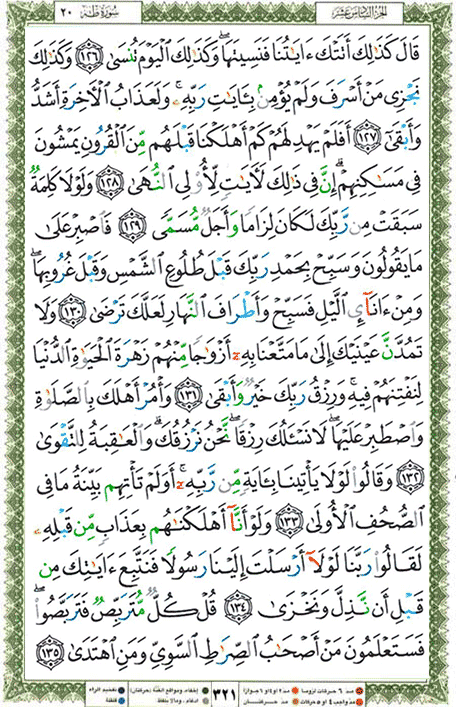 سُورَةُ طه ٢٠
الجزء السادس عشر
قَالَ كَذَٰلِكَ أَتَتْكَ ءَايَٰتُنَا فَنَسِيتَهَا ۖ وَكَذَٰلِكَ ٱلْيَوْمَ تُنسَىٰ ١٢٦ وَكَذَٰلِكَ
نَجْزِى مَنْ أَسْرَفَ وَلَمْ يُؤْمِنۢ بِـَٔايَٰتِ رَبِّهِۦ ۚ وَلَعَذَابُ ٱلْءَاخِرَةِ أَشَدُّ
وَأَبْقَىٰٓ ١٢٧ أَفَلَمْ يَهْدِ لَهُمْ كَمْ أَهْلَكْنَا قَبْلَهُم مِّنَ ٱلْقُرُونِ يَمْشُونَ
فِى مَسَٰكِنِهِمْ ۗ إِنَّ فِى ذَٰلِكَ لَءَايَٰتٍ لِّأُو۟لِى ٱلنُّهَىٰ ١٢٨ وَلَوْلَا كَلِمَةٌ
سَبَقَتْ مِن رَّبِّكَ لَكَانَ لِزَامًا وَأَجَلٌ مُّسَمًّى ١٢٩ فَٱصْبِرْ عَلَىٰ
مَا يَقُولُونَ وَسَبِّحْ بِحَمْدِ رَبِّكَ قَبْلَ طُلُوعِ ٱلشَّمْسِ وَقَبْلَ غُرُوبِهَا ۖ
وَمِنْ ءَانَآئِ ٱلَّيْلِ فَسَبِّحْ وَأَطْرَافَ ٱلنَّهَارِ لَعَلَّكَ تَرْضَىٰ ١٣٠ وَلَا
تَمُدَّنَّ عَيْنَيْكَ إِلَىٰ مَا مَتَّعْنَا بِهِۦٓ أَزْوَٰجًا مِّنْهُمْ زَهْرَةَ ٱلْحَيَوٰةِ ٱلدُّنْيَا
لِنَفْتِنَهُمْ فِيهِ ۚ وَرِزْقُ رَبِّكَ خَيْرٌ وَأَبْقَىٰ ١٣١ وَأْمُرْ أَهْلَكَ بِٱلصَّلَوٰةِ
وَٱصْطَبِرْ عَلَيْهَا ۖ لَا نَسْـَٔلُكَ رِزْقًا ۖ نَّحْنُ نَرْزُقُكَ ۗ وَٱلْعَٰقِبَةُ لِلتَّقْوَىٰ
١٣٢ وَقَالُوا۟ لَوْلَا يَأْتِينَا بِـَٔايَةٍ مِّن رَّبِّهِۦٓ ۚ أَوَلَمْ تَأْتِهِم بَيِّنَةُ مَا فِى
ٱلصُّحُفِ ٱلْأُولَىٰ ١٣٣ وَلَوْ أَنَّآ أَهْلَكْنَٰهُم بِعَذَابٍ مِّن قَبْلِهِۦ
لَقَالُوا۟ رَبَّنَا لَوْلَآ أَرْسَلْتَ إِلَيْنَا رَسُولًا فَنَتَّبِعَ ءَايَٰتِكَ مِن
قَبْلِ أَن نَّذِلَّ وَنَخْزَىٰ ١٣٤ قُلْ كُلٌّ مُّتَرَبِّصٌ فَتَرَبَّصُوا۟ ۖ
فَسَتَعْلَمُونَ مَنْ أَصْحَٰبُ ٱلصِّرَٰطِ ٱلسَّوِىِّ وَمَنِ ٱهْتَدَىٰ ١٣٥
مد ٦ حركات لزوما مد ٢ او ٤ او ٦ جوازا
مد واجب ٤ او ٥ حركات مد حركتان
٣٢١
إخفاء، ومواقع الغنة (حركتان) تفخيم الراء
ادغام، وما لا يلفظ قلقلة